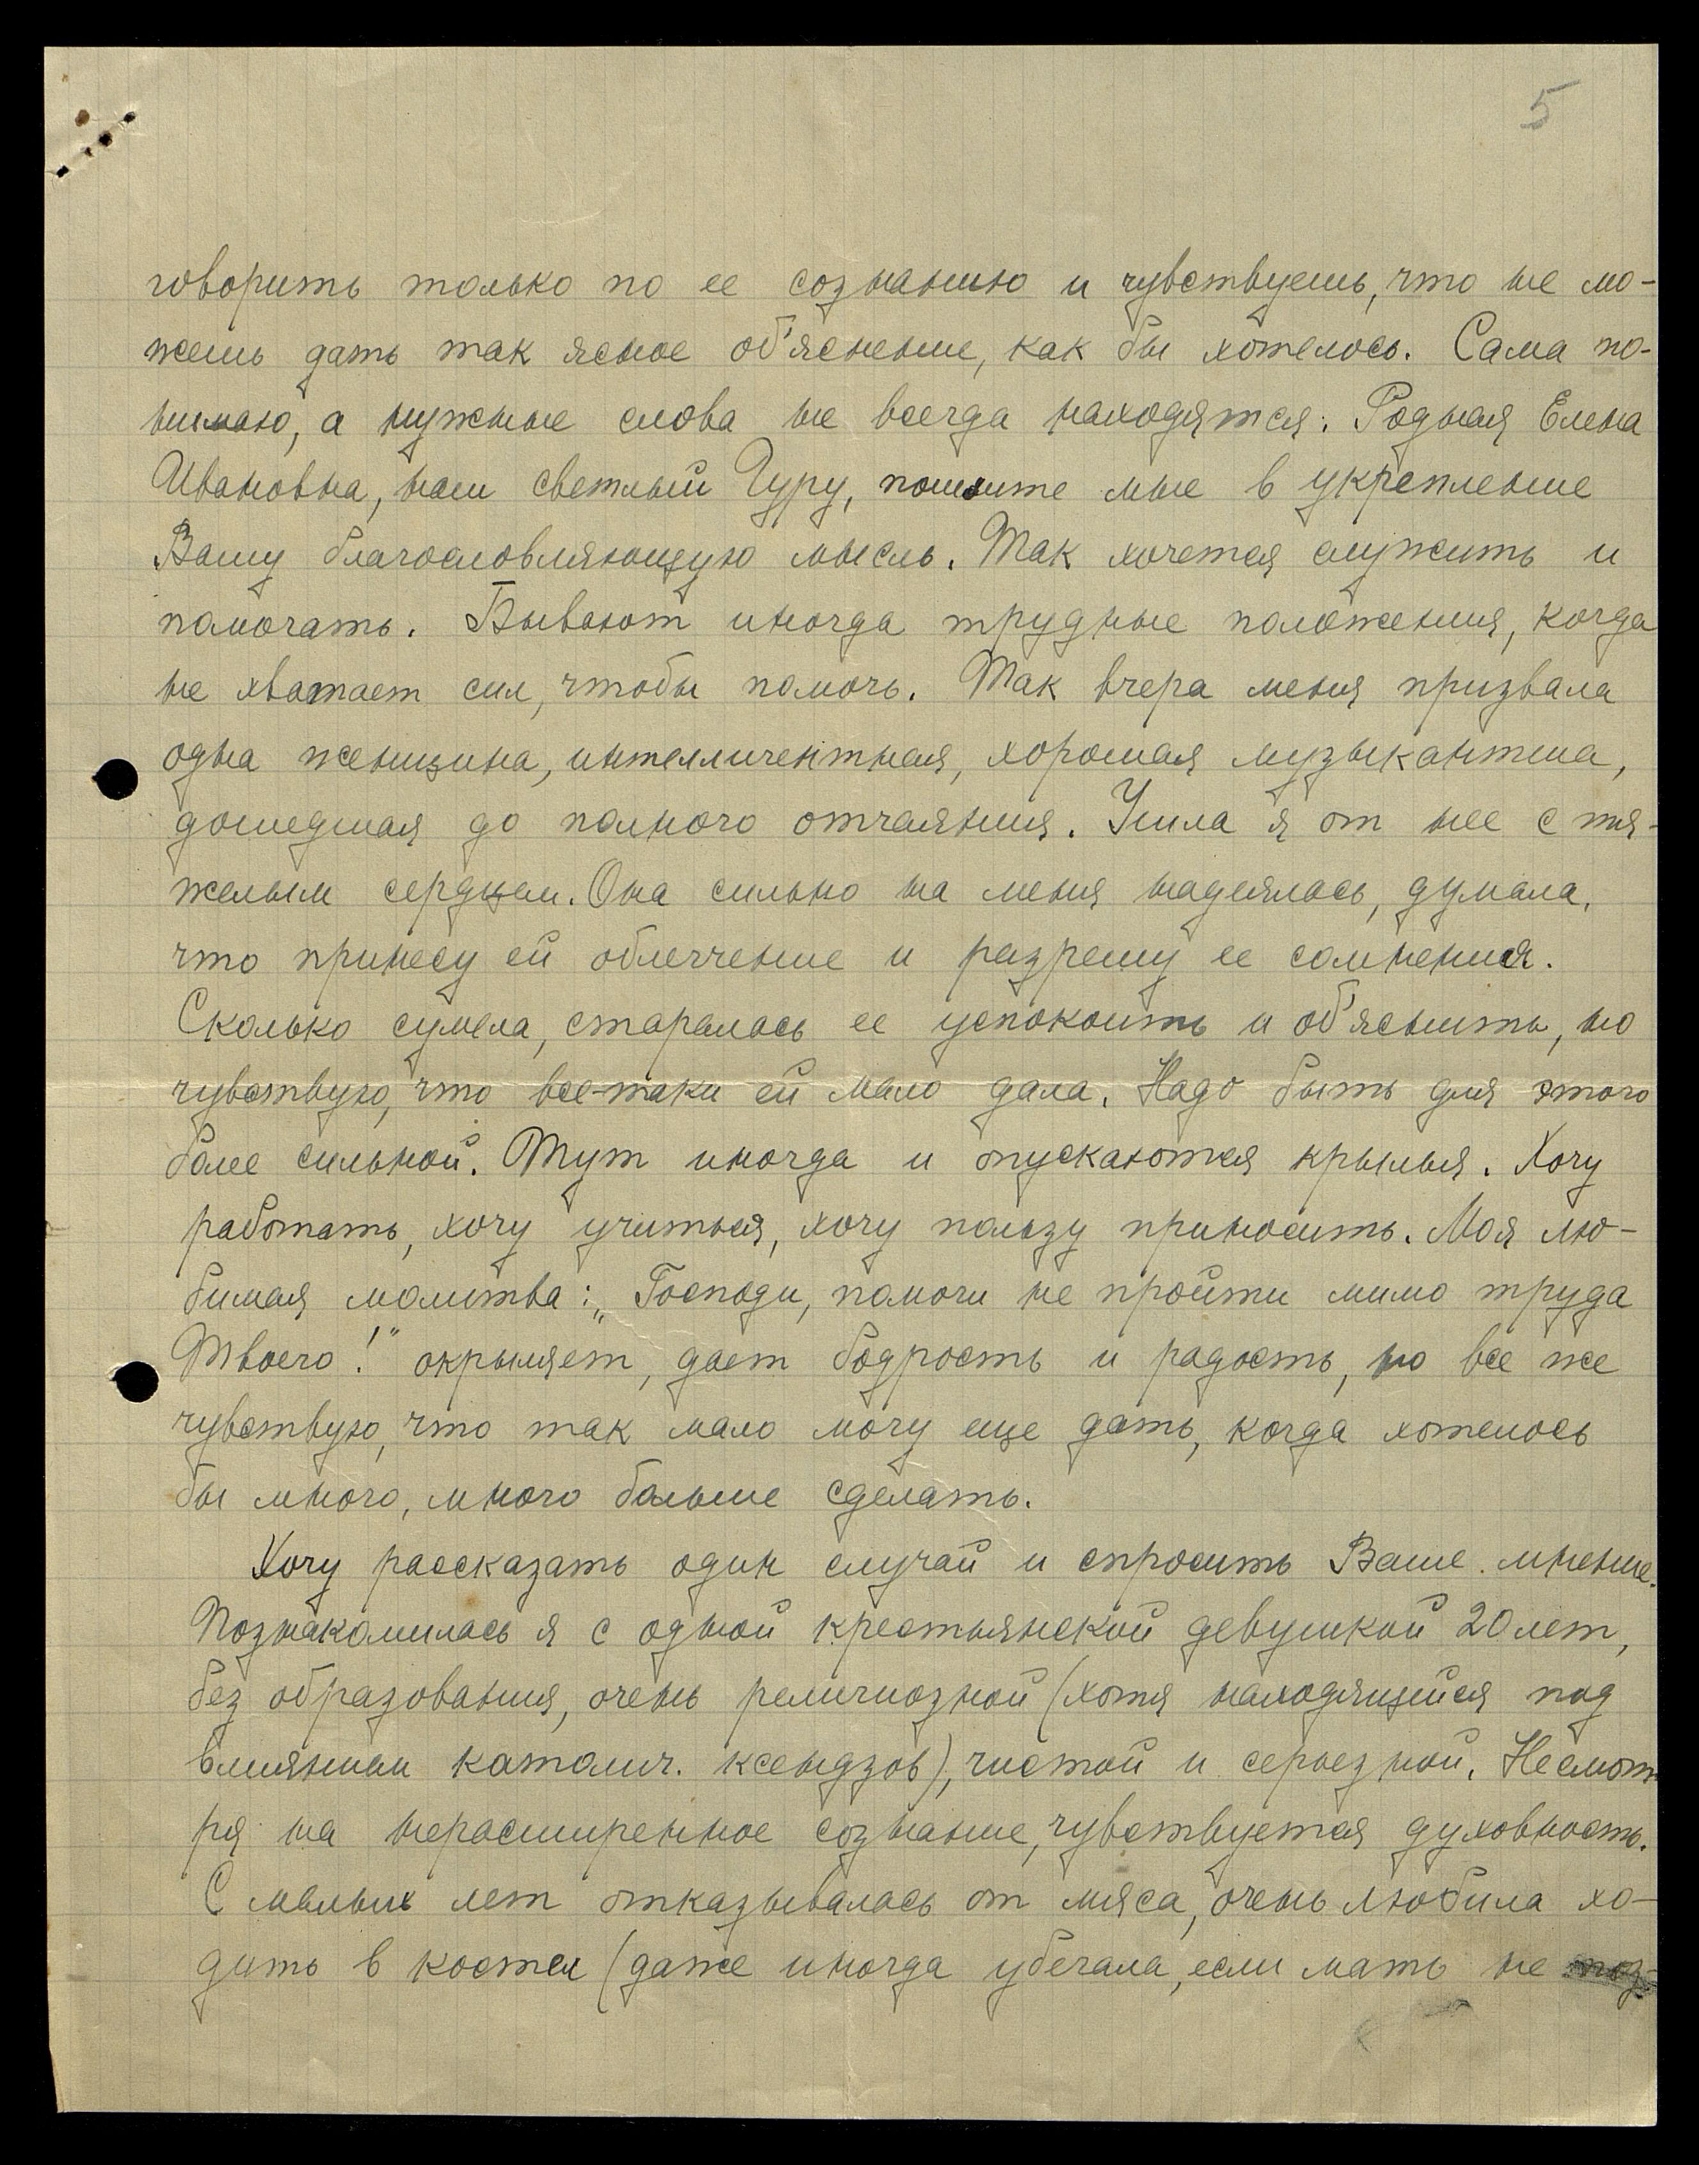 5
говорить только по ее сознанию и чувствуешь, что не мо-
жешь дать так ясное об'яснение, как бы хотелось. Сама по-
нимаю, а нужные слова не всегда находятся. Родная Елена
Ивановна, наш светлый Гуру, пошлите мне в укрепление
Вашу благословляющую мысль. Так хочется служить и
помогать. Бывают иногда трудные положения, когда
не хватает сил, чтобы помочь. Так вчера меня призвала
одна женщина, интеллигентная, хорошая музыкантша,
дошедшая до полного отчаяния. Ушла я от нее с тя-
желым сердцем. Она сильно на меня надеялась, думала,
что принесу ей облегчение и разрешу ее сомнения.
Сколько сумела, старалась ее успокоить и об'яснить, но
чувствую, что все-таки ей мало дала. Надо быть для этого
более сильной. Тут иногда и опускаются крылья. Хочу
работать, хочу учиться, хочу пользу приносить. Моя лю-
бимая молитва: „Господи, помоги не пройти мимо труда
Твоего!" окрыляет, дает бодрость и радость, но все же
чувствую, что так мало могу еще дать, когда хотелось
бы много, много больше сделать.
Хочу рассказать один случай и спросить Ваше мнение.
Познакомилась я с одной крестьянской девушкой 20 лет,
без образования, очень религиозной (хотя находящейся под
влиянием католич. ксендзов), чистой и серьезной. Несмот
ря на нерасширенное сознание, чувствуется духовность.
С малых лет отказывалась от мяса, очень любила хо-
дить в костел (даже иногда убегала, если мать не поз-